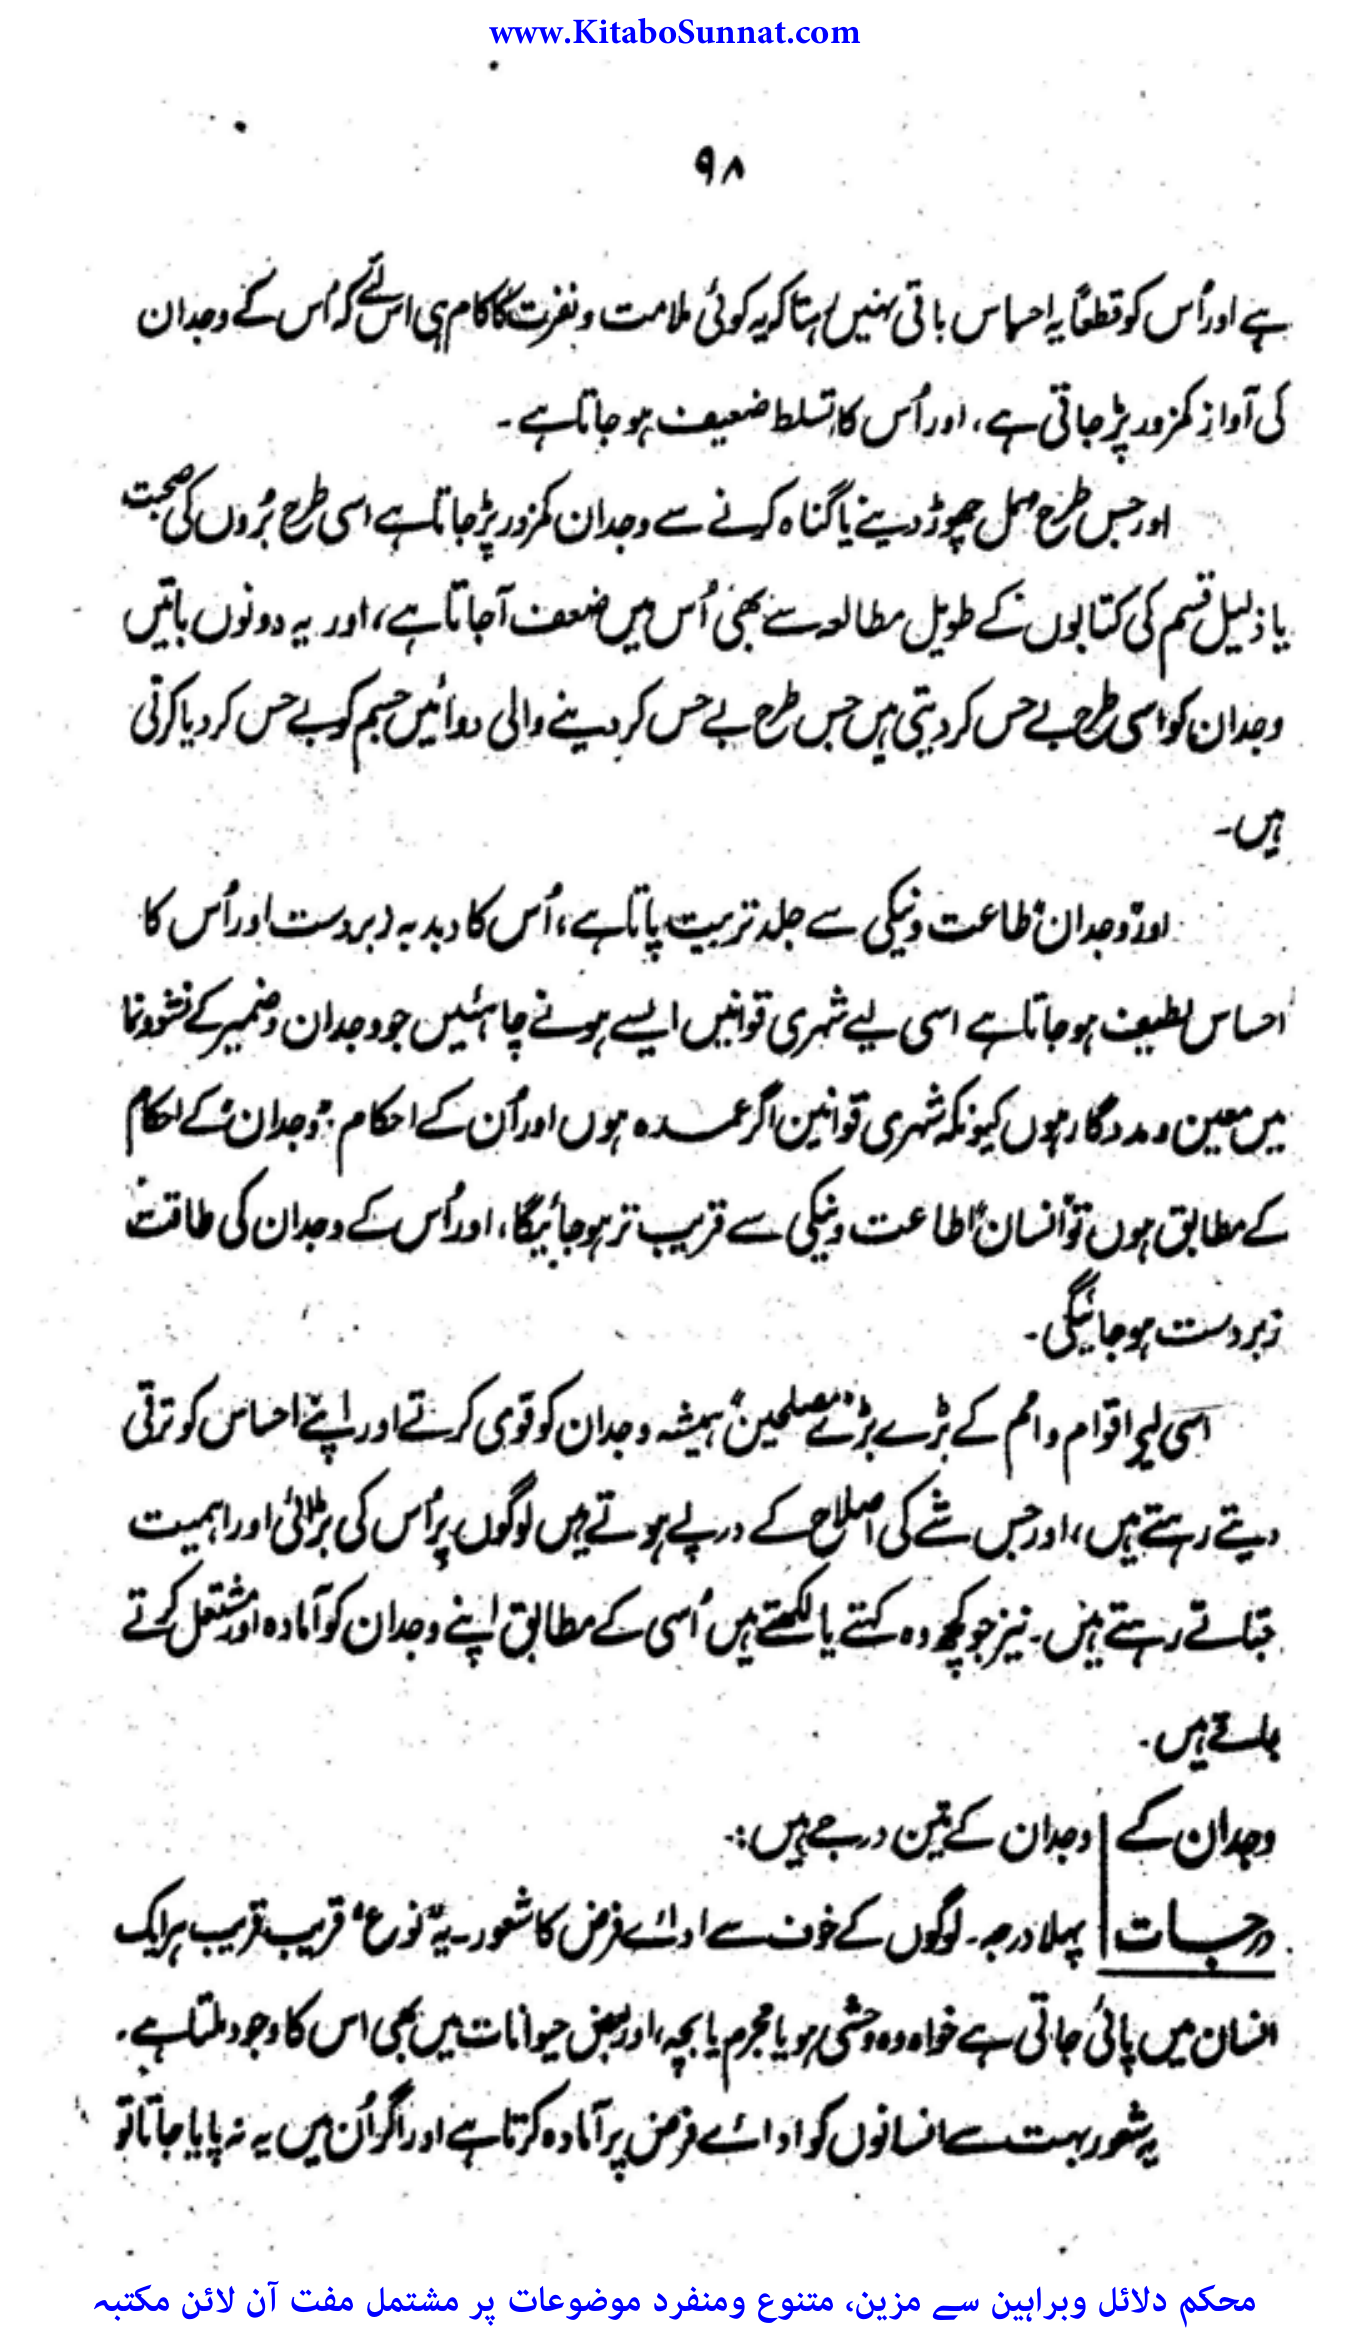 www.KitaboSunnat.com
۹۸
ہے اور اُس کو قطعًا یہ احساس باقی نہیں رہتا کہ یہ کوئی ملامت و نفرت کا کام ہی اس لئے کہ اُس کے وجدان
کی آواز کمزور پڑ جاتی ہے، اور اُس کا تسلط ضعیف ہو جاتا ہے۔
اور جس طرح مہمل چھوڑ دینے یا گناہ کرنے سے وجدان کمزور پڑ جاتا ہے اسی طرح بُروں کی صحبت
یا ذلیل قسم کی کتابوں کے طویل مطالعہ سے بھی اُس میں ضعف آجاتا ہے، اور یہ دونوں باتیں
وجدان کو اسی طرح بے حس کر دیتی ہیں جس طرح بے حس کر دینے والی دوائیں جسم کو بے حس کر دیا کرتی
ہیں۔
اور "وجدان" طاعت و نیکی سے جلد تربیت پاتا ہے، اُس کا دبدبہ زبردست اور اُس کا
احساس لطیف ہو جاتا ہے اسی لیے شہری قوانیں ایسے ہونے چاہئیں جو وجدان و ضمیر کے نشوونما
میں معین و مددگار ہوں کیونکہ شہری قوانین اگر عمدہ ہوں اور اُن کے احکام "وجدان" کے احکام
کے مطابق ہوں تو "انسان" اطاعت و نیکی سے قریب تر ہو جائیگا، اور اُس کے وجدان کی طاقت
زبردست ہو جائیگی۔
اسی لیے اقوام و امم کے بڑے بڑے "مصلحین" ہمیشہ وجدان کو قوی کرتے اور اپنے احساس کو ترقی
دیتے رہتے ہیں، اور جس شے کی اصلاح کے درپے ہوتے ہیں لوگوں پر اُس کی بڑائی اور اہمیت
جتاتے رہتے ہیں۔ نیز جو کچھ وہ کہتے یا لکھتے ہیں اُسی کے مطابق اپنے وجدان کو آمادہ اور مشتعل کرتے
جاتے ہیں۔
وجدان کے | وجدان کے تین درجے ہیں:۔
درجات | پہلا درجہ۔ لوگوں کے خوف سے ادائے فرض کا شعور۔ یہ "نوع" قریب قریب ہر ایک
انسان میں پائی جاتی ہے خواہ وہ وحشی ہو یا مجرم یا بچہ، اور بعض حیوانات میں بھی اس کا وجود ملتا ہے۔
یہ شعور بہت سے انسانوں کو ادائے فرض پر آمادہ کرتا ہے اور اگر اُن میں یہ نہ پایا جاتا تو
محکم دلائل وبراہین سے مزین، متنوع ومنفرد موضوعات پر مشتمل مفت آن لائن مکتبہ